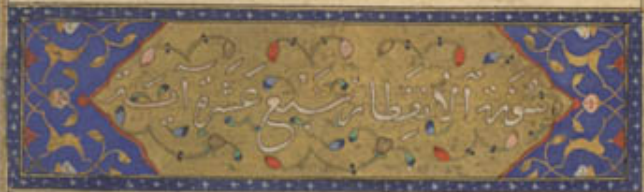 سُورَة الانفِطار سَبْع عَشَرَة آيَة